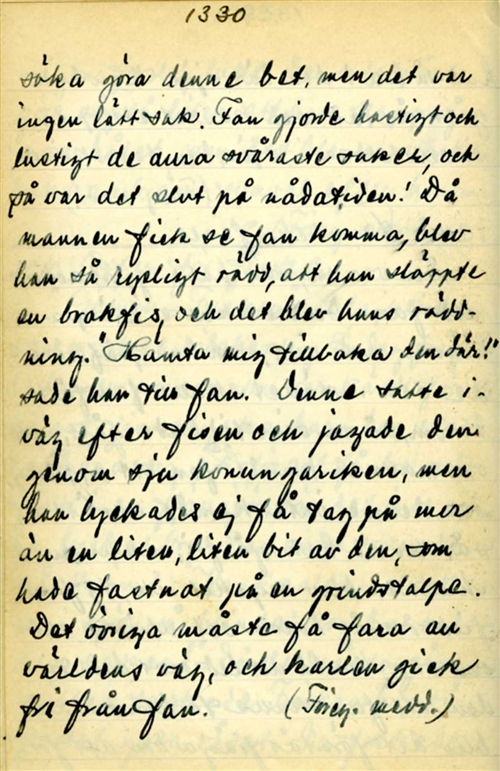 1330
söka göra denne bet, men det var
ingen lätt sak. Fan gjorde hastigt och
lustigt de allra svåraste saker, och
så var det slut på nådatiden! Då
mannen fick se fan komma, blev
han så rysligt rädd, att han släppte
en brakfis, och det blev hans rädd-
ning. "Hämta mig tillbaka den där!"
sade han till fan. Denne satte i-
väg efter fisen och jagade den
genom sju konungariken, men
han lyckades ej få tag på mer
än en liten, liten bit av den, som
hade fastnat på en grindstolpe.
Det övriga måste få fara all
världens väg, och karlen gick
fri från fan. (Föreg. medd.)